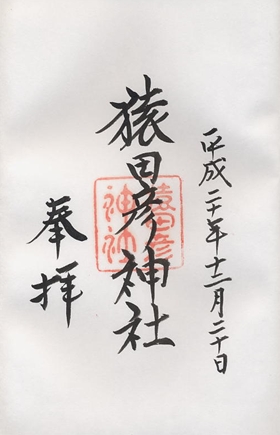 平成二十年十二月二十日
猿田彦神社
猿田彦
神社
奉拝